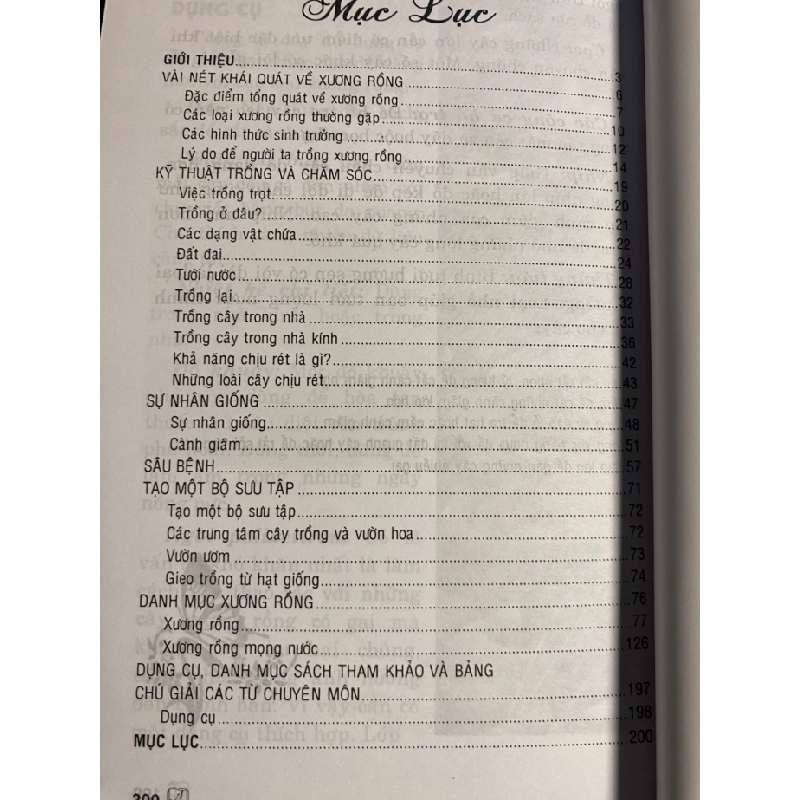 Mục Lục
GIỚI THIỆU 3
VÀI NÉT KHÁI QUÁT VỀ XƯƠNG RỒNG 6
Đặc điểm tổng quát về xương rồng 7
Các loại xương rồng thường gặp 10
Các hình thức sinh trưởng 12
Lý do để người ta trồng xương rồng 14
KỸ THUẬT TRỒNG VÀ CHĂM SÓC 19
Việc trồng trọt 20
Trồng ở đâu? 21
Các dạng vật chứa 22
Đất đai 24
Tưới nước 28
Trồng lại 32
Trồng cây trong nhà 33
Trồng cây trong nhà kính 36
Khả năng chịu rét là gì? 42
Những loài cây chịu rét 43
SỰ NHÂN GIỐNG 47
Sự nhân giống 48
Cành giâm 51
SÂU BỆNH 57
TẠO MỘT BỘ SƯU TẬP 71
Tạo một bộ sưu tập 72
Các trung tâm cây trồng và vườn hoa 72
Vườn ươm 73
Gieo trồng từ hạt giống 74
DANH MỤC XƯƠNG RỒNG 76
Xương rồng 77
Xương rồng mọng nước 126
DỤNG CỤ, DANH MỤC SÁCH THAM KHẢO VÀ BẢNG
CHÚ GIẢI CÁC TỪ CHUYÊN MÔN 197
Dụng cụ 198
MỤC LỤC 200
200